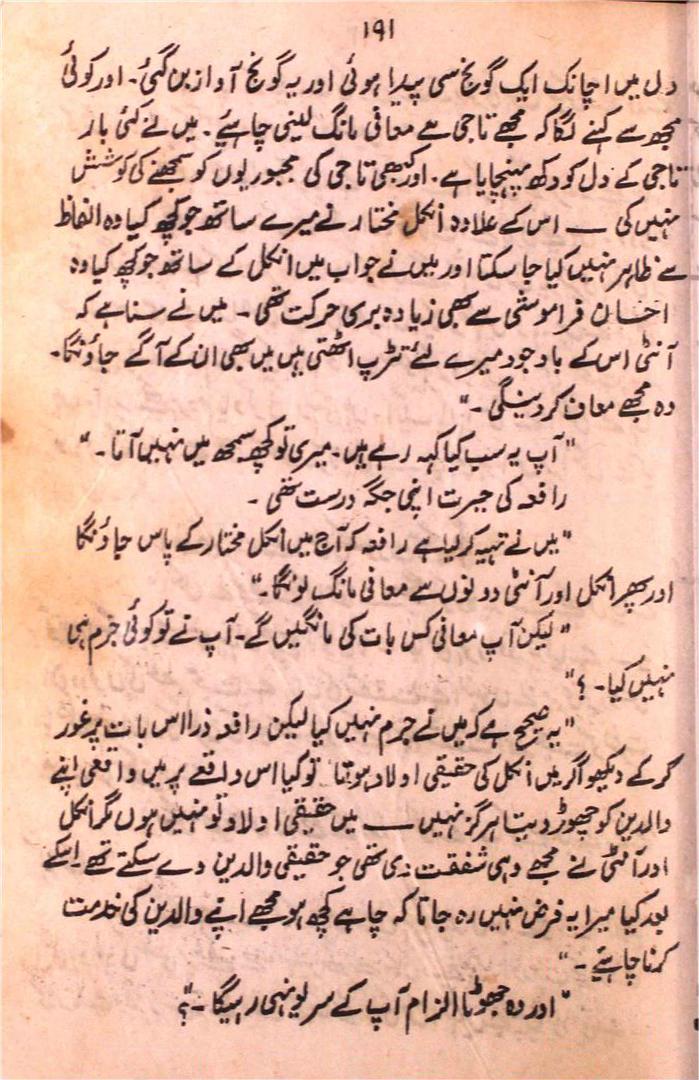 ۱۹۱
دل میں اچانک ایک گونج سی پیدا ہوئی اور یہ گونج آواز بن گئی۔ اور کوئی
مجھ سے کہنے لگا کہ مجھے تاجی سے معافی مانگ لینی چاہئے۔ میں نے کئی بار
تاجی کے دل کو دکھ پہنچایا ہے۔ اور کبھی تاجی کی مجبوریوں کو سمجھنے کی کوشش
نہیں کی ــــ اس کے علاوہ انکل مختار نے میرے ساتھ جو کچھ کیا وہ الفاظ
سے ظاہر نہیں کیا جا سکتا اور میں نے جواب میں انکل کے ساتھ جو کچھ کیا وہ
احسان فراموشی سے بھی زیادہ بری حرکت تھی۔ میں نے سنا ہے کہ
آنٹی اس کے باوجود میرے لئے تڑپ اٹھتی ہیں میں بھی ان کے آگے جاؤنگا۔
وہ مجھے معاف کر دینگی۔"
"آپ یہ سب کیا کہہ رہے ہیں۔ میری تو کچھ سمجھ میں نہیں آتا۔"
رافعہ کی حیرت اپنی جگہ درست تھی۔
"میں نے تہیہ کر لیا ہے رافعہ کہ آج میں انکل مختار کے پاس جاؤنگا
اور پھر انکل اور آنٹی دونوں سے معافی مانگ لونگا۔"
"لیکن آپ معافی کس بات کی مانگیں گے۔ آپ نے تو کوئی جرم ہی
نہیں کیا۔؟"
"یہ صحیح ہے کہ میں نے جرم نہیں کیا لیکن رافعہ ذرا اس بات پر غور
کر کے دیکھو اگر میں انکل کی حقیقی اولاد ہوتا تو کیا اس واقعے پر میں واقعی اپنے
والدین کو چھوڑ دیتا ہرگز نہیں ــــ میں حقیقی اولاد تو نہیں ہوں مگر انکل
اور آنٹی نے مجھے وہی شفقت دی تھی جو حقیقی والدین دے سکتے تھے اسکے
بعد کیا میرا یہ فرض نہیں رہ جاتا کہ چاہے کچھ ہو مجھے اپنے والدین کی خدمت
کرنا چاہئے۔"
"اور وہ جھوٹا الزام آپ کے سر یونہی رہیگا۔؟"